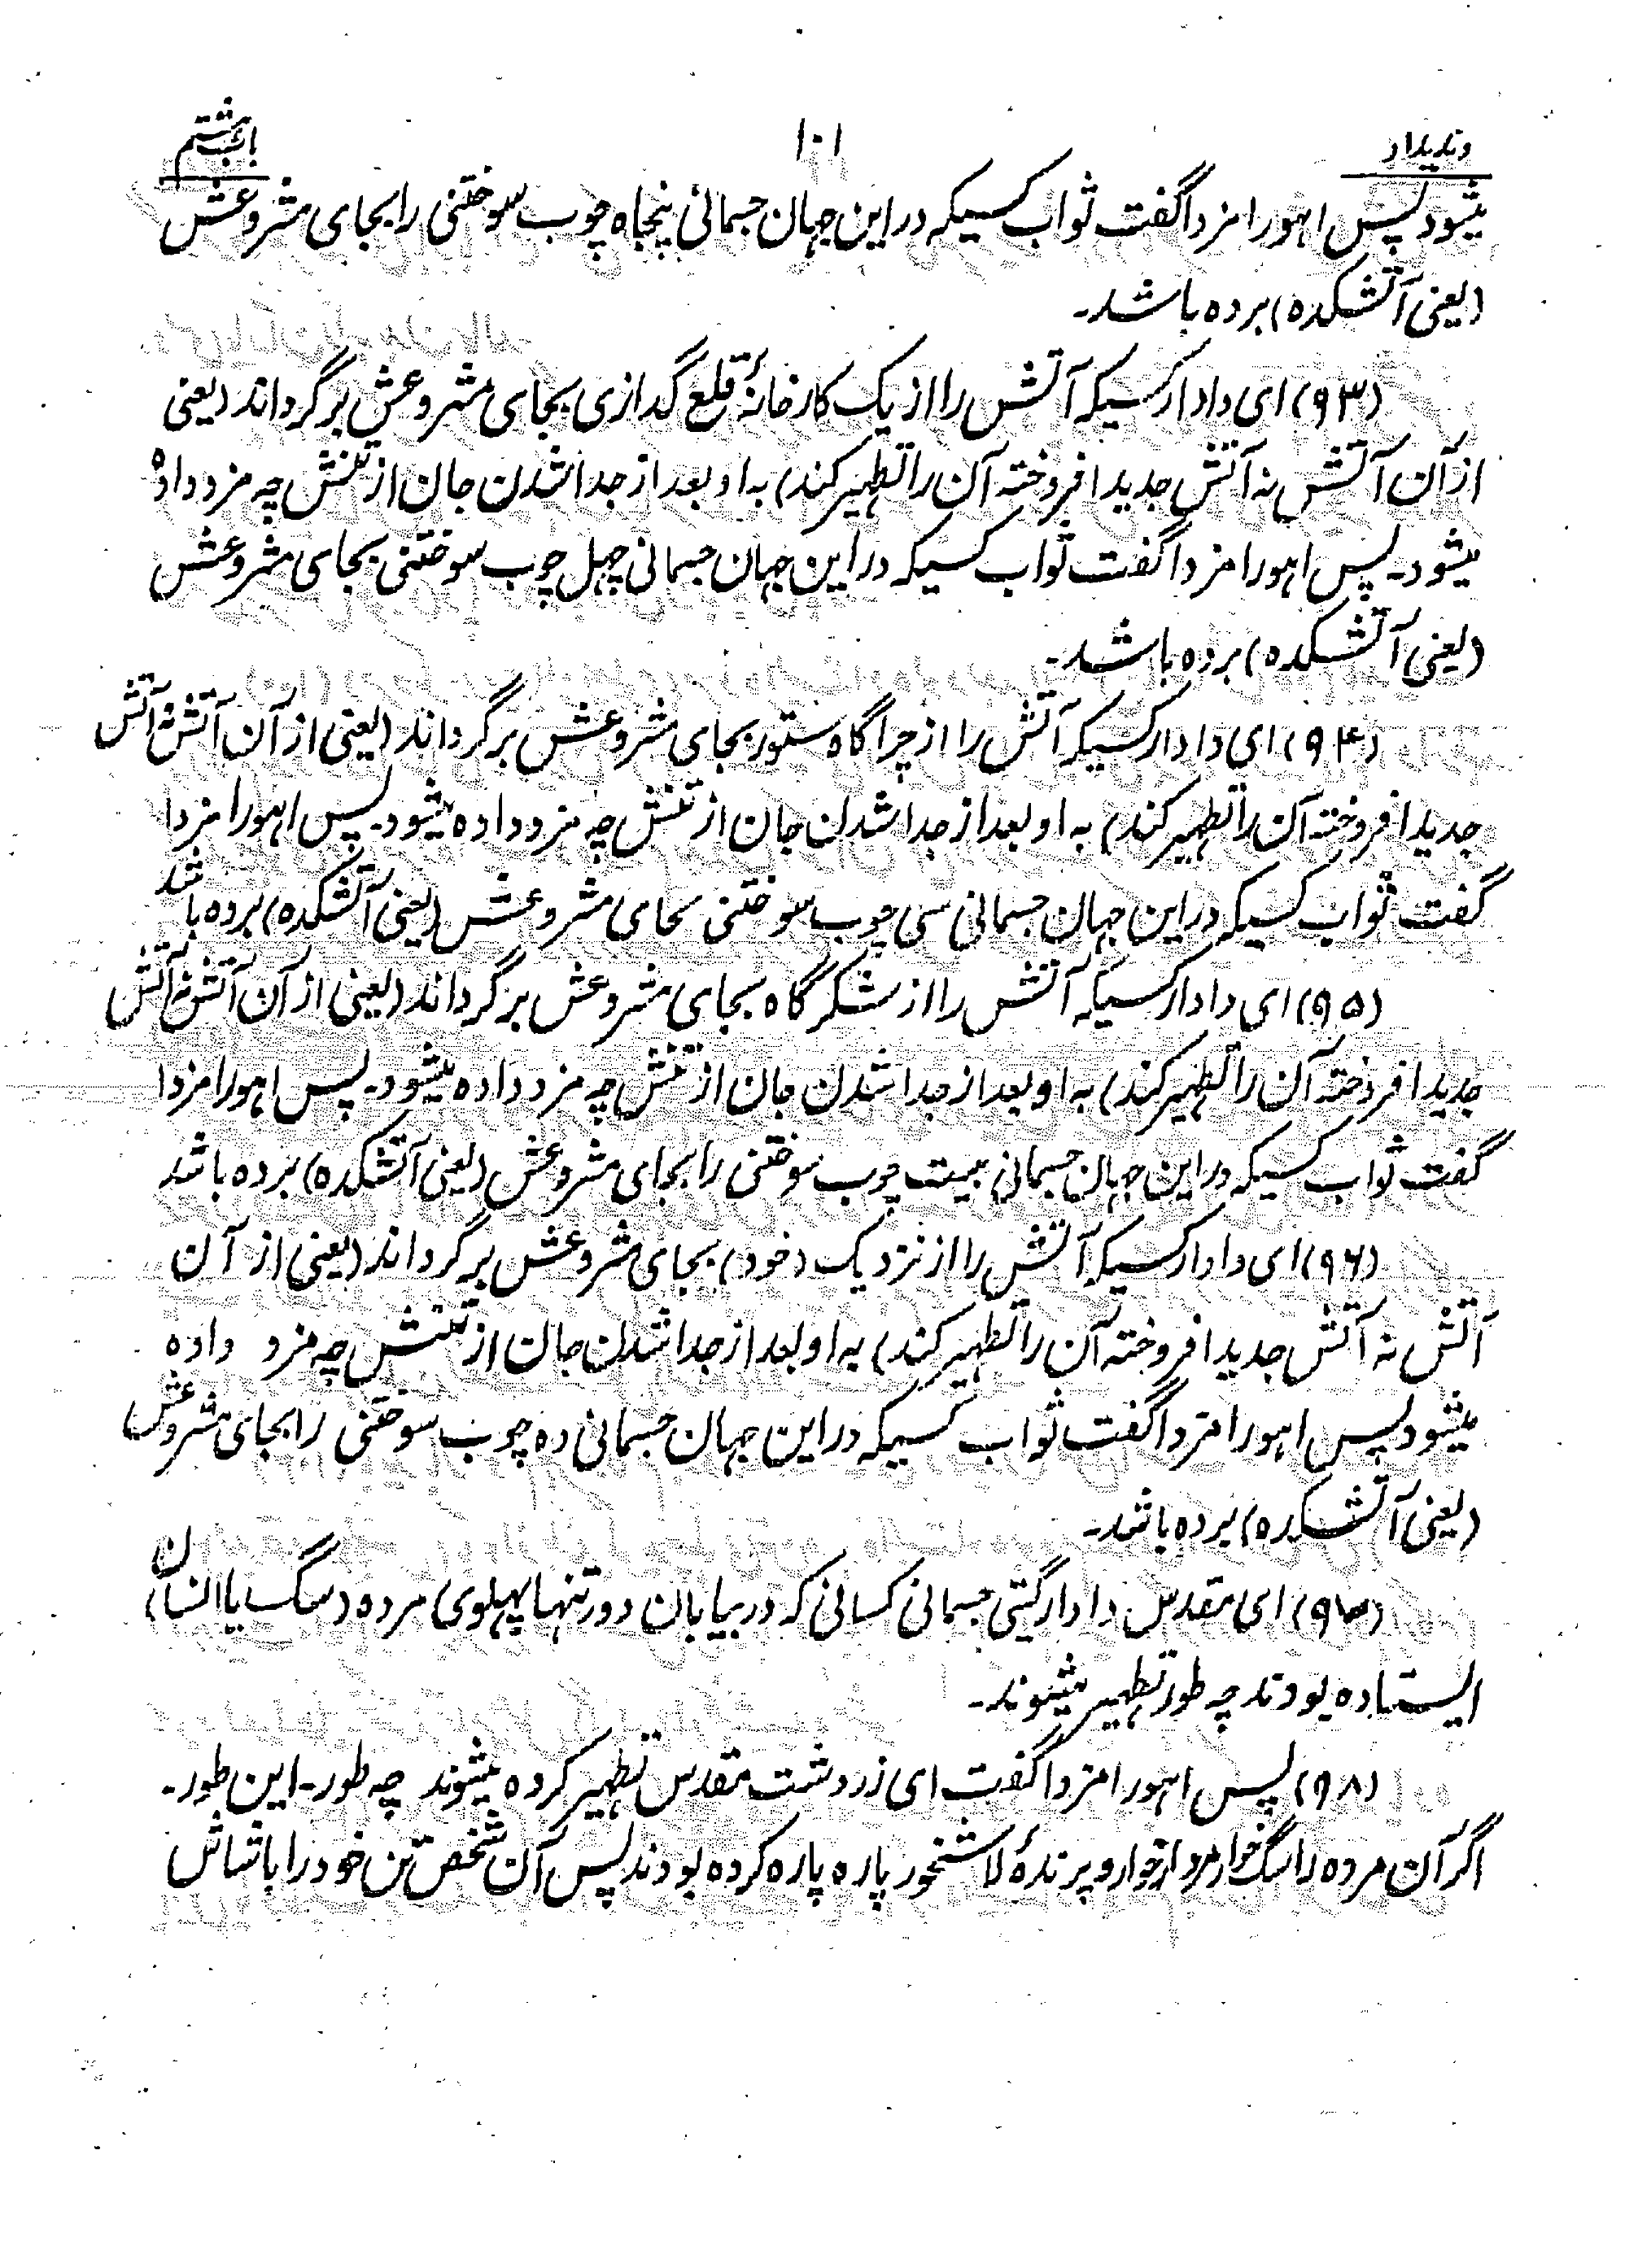 وندیداد
۱۰۱
باب هشتم
میشود پس اهورا مزدا گفت ثواب کسیکه در این جهان جسمانی پنجاه چوب سوختنی را بجای مشروعش
(یعنی آتشکده) برده باشد-
(۹۳) ای دادار کسیکه آتش را از یک کارخانهٔ قلع گدازی بجای مشروعش برگرداند (یعنی
از آن آتش نه آتش جدید افروخته آن را تطهیر کند) به او بعد از جدا شدن جان از تنش چه مزد داده
میشود- پس اهورا مزدا گفت ثواب کسیکه در این جهان جسمانی چهل چوب سوختنی بجای مشروعش
(یعنی آتشکده) برده باشد-
(۹۴) ای دادار کسیکه آتش را از چراگاه ستور بجای مشروعش برگرداند (یعنی از آن آتش نه آتش
جدید افروخته آن را تطهیر کند) به او بعد از جدا شدن جان از تنش چه مزد داده میشود- پس اهورا مزدا
گفت ثواب کسیکه در این جهان جسمانی سی چوب سوختنی بجای مشروعش (یعنی آتشکده) برده باشد
(۹۵) ای دادار کسیکه آتش را از لشکرگاه بجای مشروعش برگرداند (یعنی از آن آتش نه آتش
جدید افروخته آن را تطهیر کند) به او بعد از جدا شدن جان از تنش چه مزد داده میشود- پس اهورا مزدا
گفت ثواب کسیکه در این جهان جسمانی بیست چوب سوختنی را بجای مشروعش (یعنی آتشکده) برده باشد
(۹۶) ای دادار کسیکه آتش را از نزدیک (خود) بجای مشروعش برگرداند (یعنی از آن
آتش نه آتش جدید افروخته آن را تطهیر کند) به او بعد از جدا شدن جان از تنش چه مزد داده
میشود پس اهورا مزدا گفت ثواب کسیکه در این جهان جسمانی ده چوب سوختنی را بجای مشروعش
(یعنی آتشکده) برده باشد-
(۹۷) ای مقدس دادار گیتی جسمانی کسانی که در بیابان دور تنها پهلوی مرده (سگ یا انسان)
ایستاده بودند چه طور تطهیر میشوند-
(۹۸) پس اهورا مزدا گفت ای زردشت مقدس تطهیر کرده میشوند چه طور- این طور-
اگر آن مرده را سگ خوار مردارخوار و پرندهٔ لاشخور پاره پاره کرده بودند پس آن شخص تن خود را با شاش